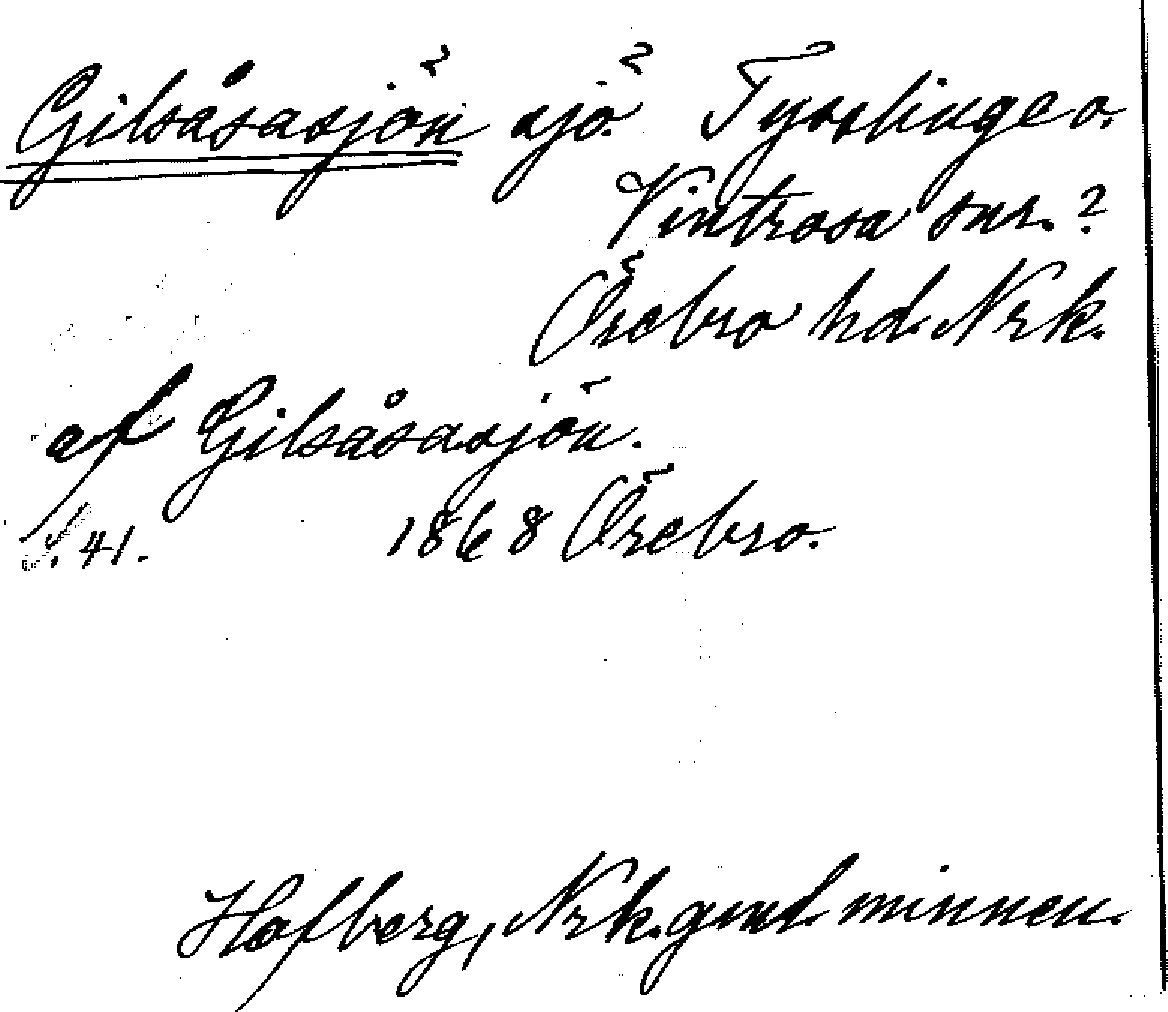 Gilsåsasjön sjö. Tysslinge o.
Vintrosa snr. ?
Örebro hd. Nrk.
af Gilsåsasjön.
S. 41. 1868 Örebro.
Hofberg, Nrk. gml. minnen.